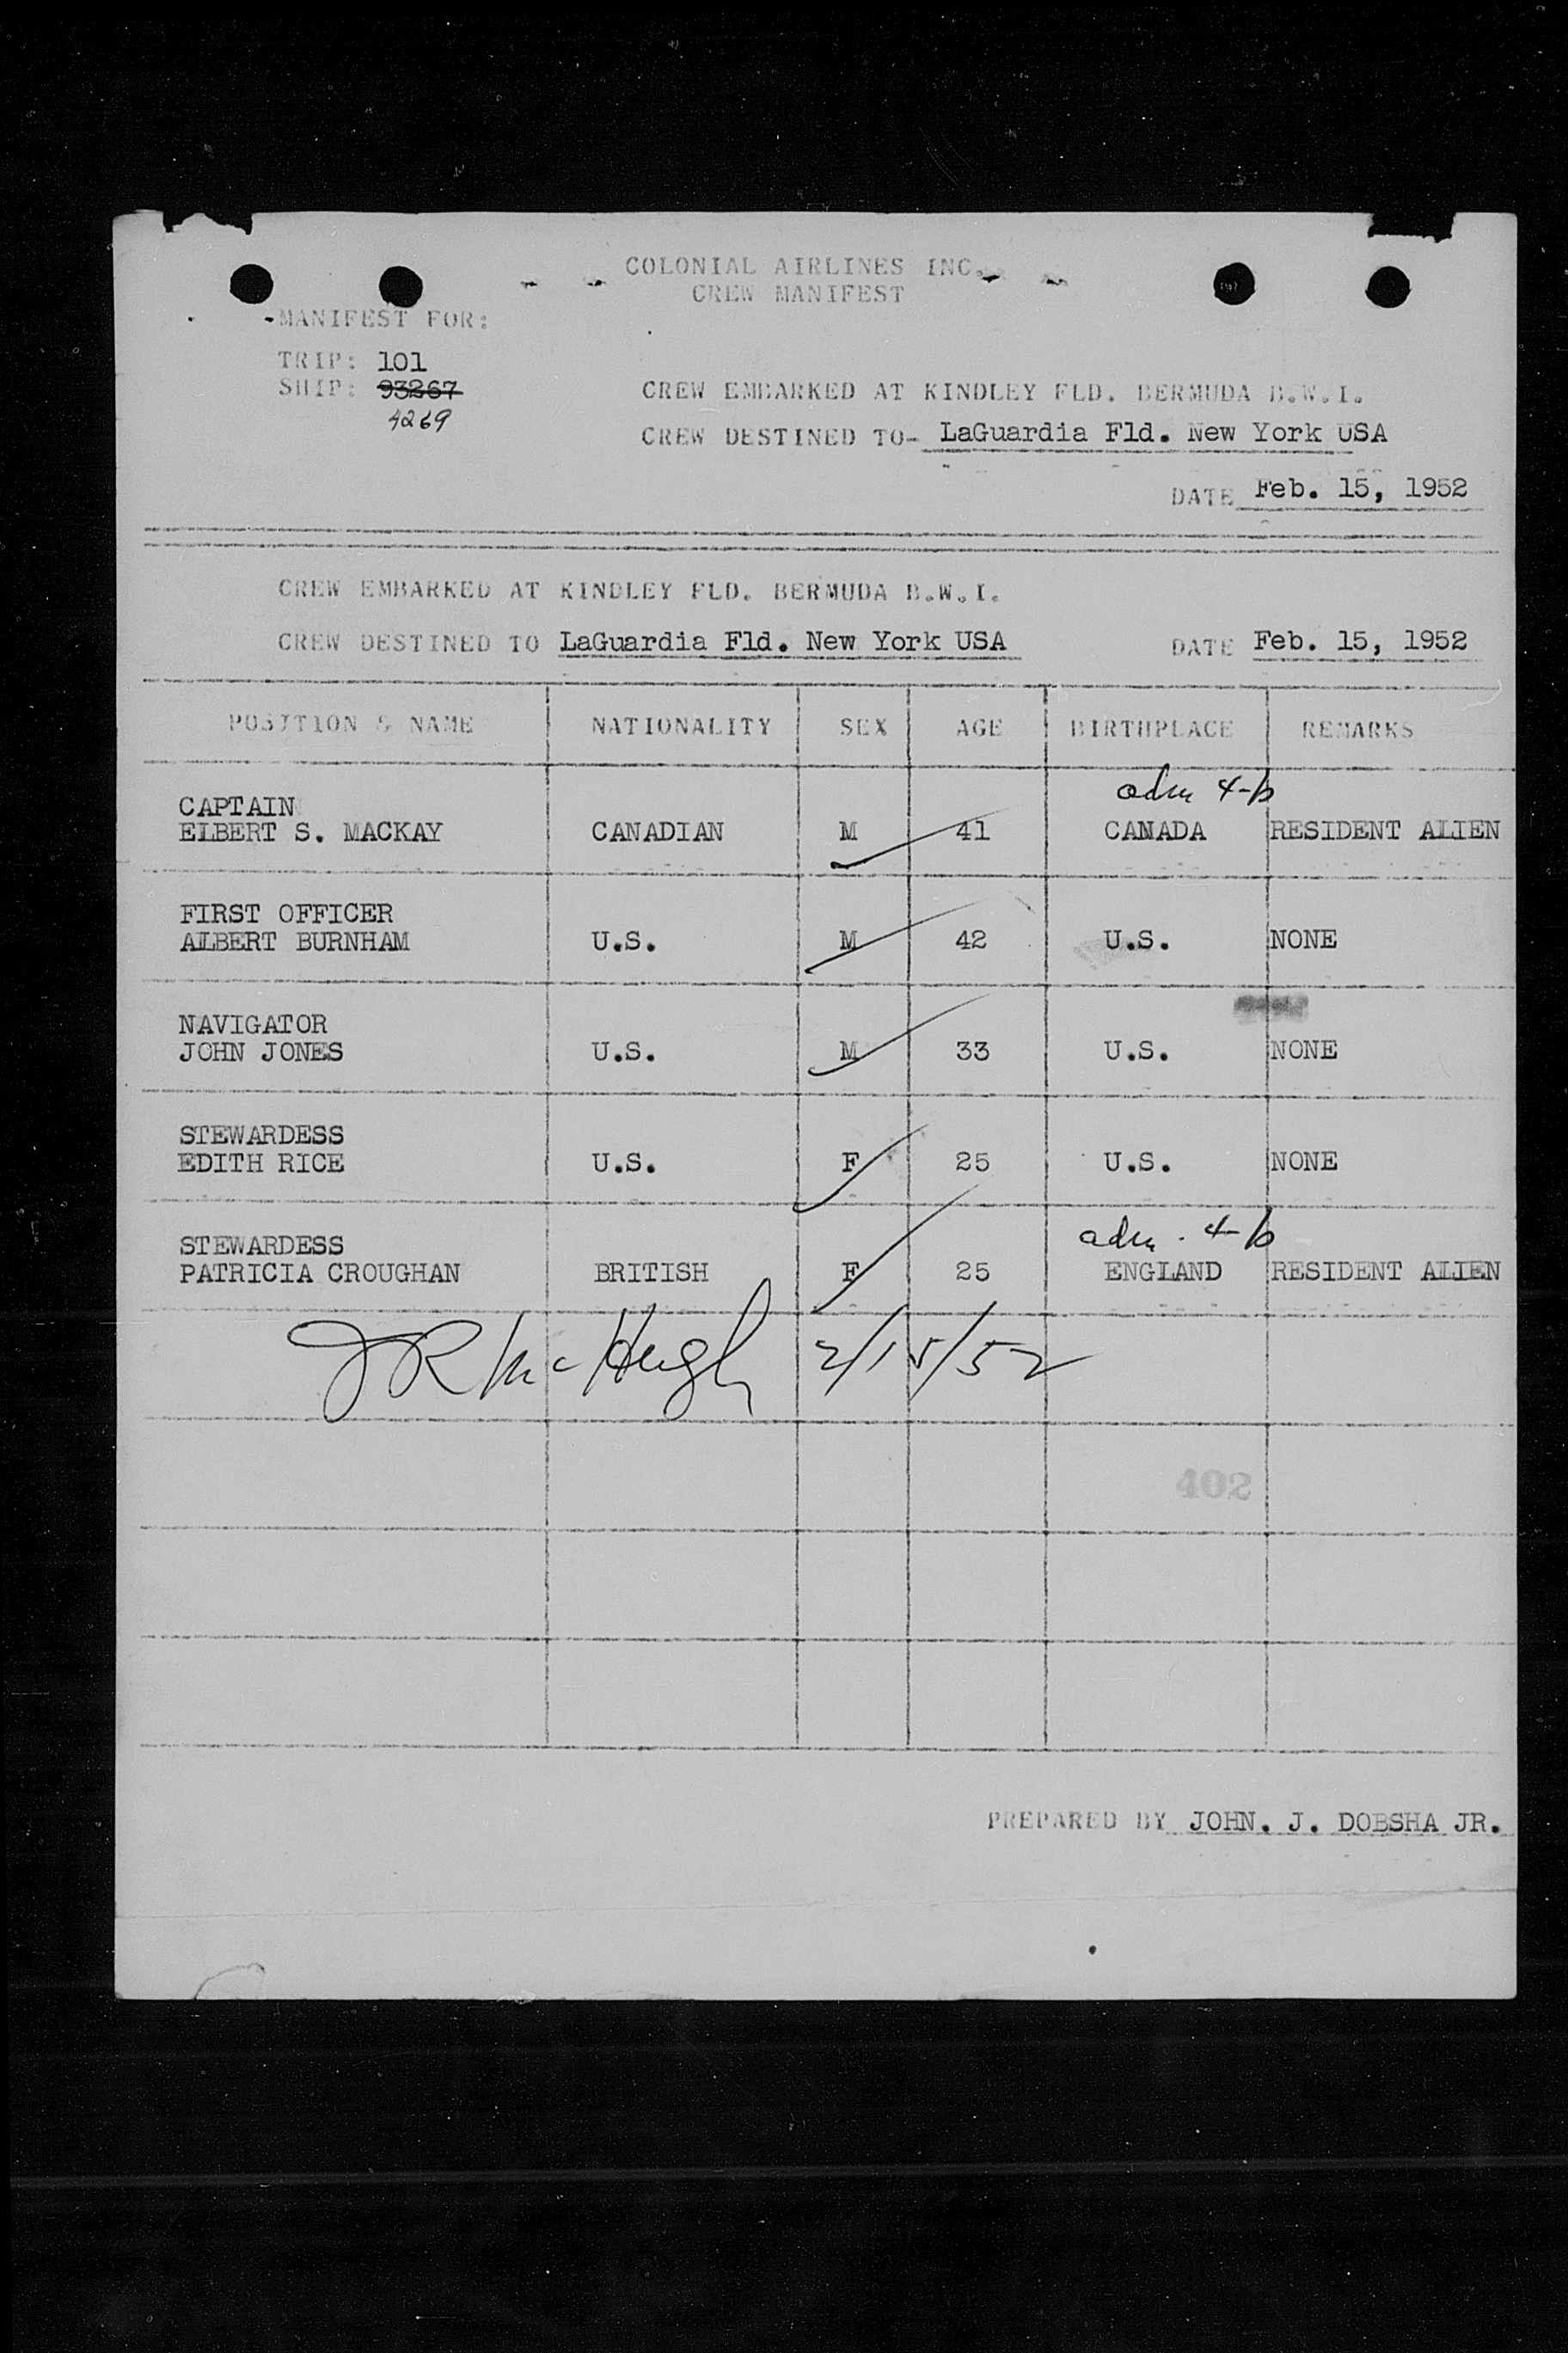 COLONIAL AIRLINES INC.
CREW MANIFEST
MANIFEST FOR:
TRIP: 101
SHIP: 93267
4269
CREW EMBARKED AT KINDLEY FLD. BERMUDA B.W.I.
CREW DESTINED TO- LaGuardia Fld. New York USA
DATE Feb. 15, 1952
CREW EMBARKED AT KINDLEY FLD. BERMUDA B.W.I.
CREW DESTINED TO LaGuardia Fld. New York USA DATE Feb. 15, 1952
POSITION & NAME NATIONALITY SEX AGE BIRTHPLACE REMARKS
adm 4-b
CAPTAIN
ELBERT S. MACKAY CANADIAN M 41 CANADA RESIDENT ALIEN
FIRST OFFICER
ALBERT BURNHAM U.S. M 42 U.S. NONE
NAVIGATOR
JOHN JONES U.S. M 33 U.S. NONE
STEWARDESS
EDITH RICE U.S. F 25 U.S. NONE
adm. 4-b
STEWARDESS
PATRICIA CROUGHAN BRITISH F 25 ENGLAND RESIDENT ALIEN
JR McHugh 2/15/52
402
PREPARED BY JOHN. J. DOBSHA JR.